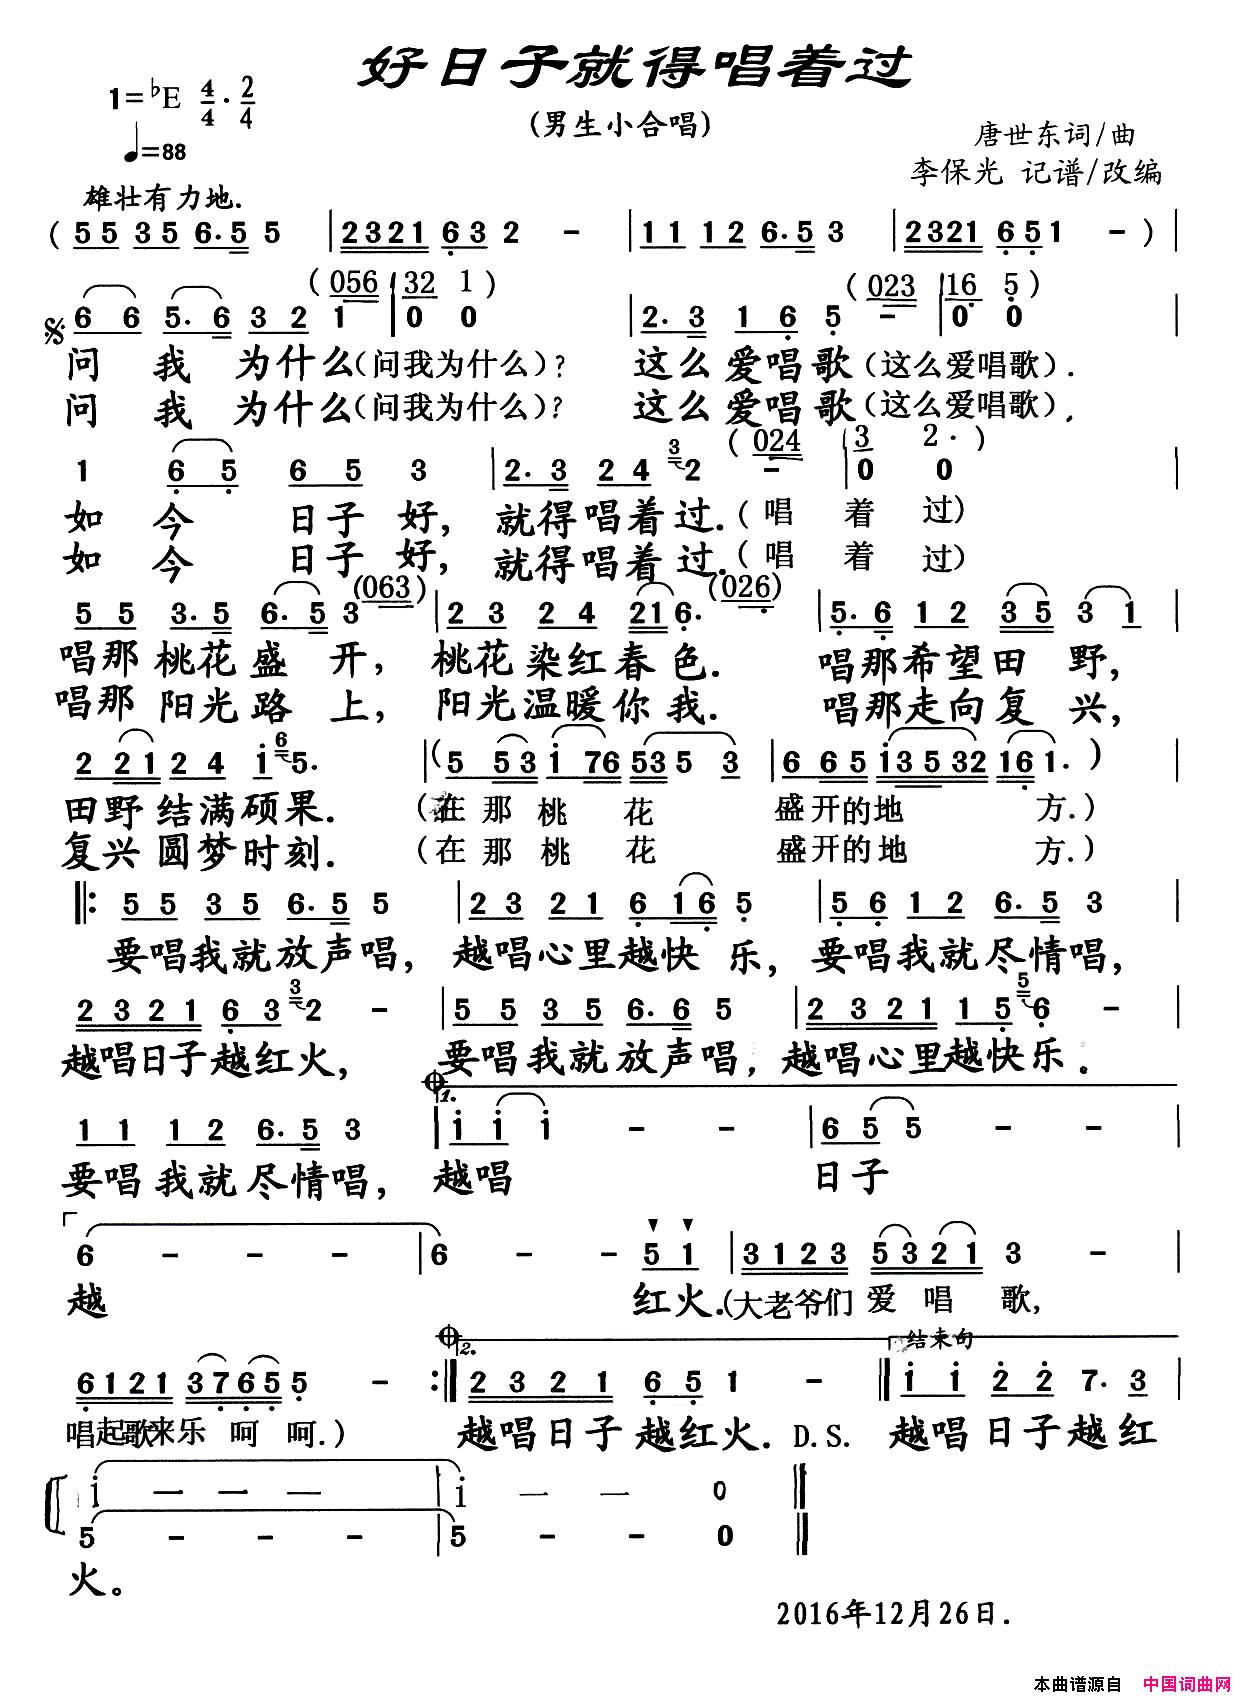 好日子就得唱着过
(男生小合唱)
1=♭E 4/4 · 2/4
♩=88
唐世东词/曲
李保光 记谱/改编
雄壮有力地.
( 55 35 6·5 5 | 2321 63 2 - | 11 12 6·5 3 | 2321 65 1 - ) |
(056 | 32 1 ) (023 | 16 5 )
6 6 5·6 3 2 1 | 0 0 | 2·3 1 6 5 - | 0 0 |
问 我 为什么(问我为什么)? 这么爱唱歌(这么爱唱歌).
问 我 为什么(问我为什么)? 这么爱唱歌(这么爱唱歌).
(024 | 3 2· )
1 6 5 6 5 3 | 2·3 2 4 3 2 - | 0 0 |
如 今 日子 好, 就得唱着过.(唱 着 过)
如 今 日子 好, 就得唱着过.(唱 着 过)
(063) (026)
5 5 3·5 6·5 3 | 2 3 2 4 21 6· | 5·6 1 2 3 5 3 1 |
唱那 桃花 盛 开, 桃花染红春色. 唱那希望田 野,
唱那 阳光 路 上, 阳光温暖你我. 唱那走向复 兴,
2 21 2 4 i 6 5· | (5 53 i 76 53 5 3 | 6 65 i353216 1· )
田野 结满硕果. (在那 桃 花 盛开的地 方.)
复兴 圆梦时刻. (在那 桃 花 盛开的地 方.)
‖: 5 5 3 5 6·5 5 | 2 3 2 1 6 16 5 | 5 6 1 2 6·5 3 |
要唱我就放声唱, 越唱心里越快 乐, 要唱我就尽情唱,
2 3 2 1 6 3 3 2 - | 5 5 3 5 6·6 5 | 2 3 2 1 1 5 5 6 - |
越唱日子越红火, 要唱我就放声唱, 越唱心里越快乐.
1.
1 1 1 2 6·5 3 | i i i - - | 6 5 5 - - |
要唱 我就 尽情唱, 越唱 日子
6 - - - | 6 - - 5 1 | 3 1 2 3 5321 3 - |
越 红火.(大老爷们 爱 唱 歌,
2. 结束句
6121 3765 5 - :‖ 2 3 2 1 6 5 1 - ‖ i i 2 2 7·3 |
唱起歌来乐 呵 呵.) 越唱日子 越红火. D.S. 越唱日子越红
i — — — | i — — 0 ‖
5 - - - | 5 - - 0 ‖
火。
2016年12月26日.
本曲谱源自 中国词曲网